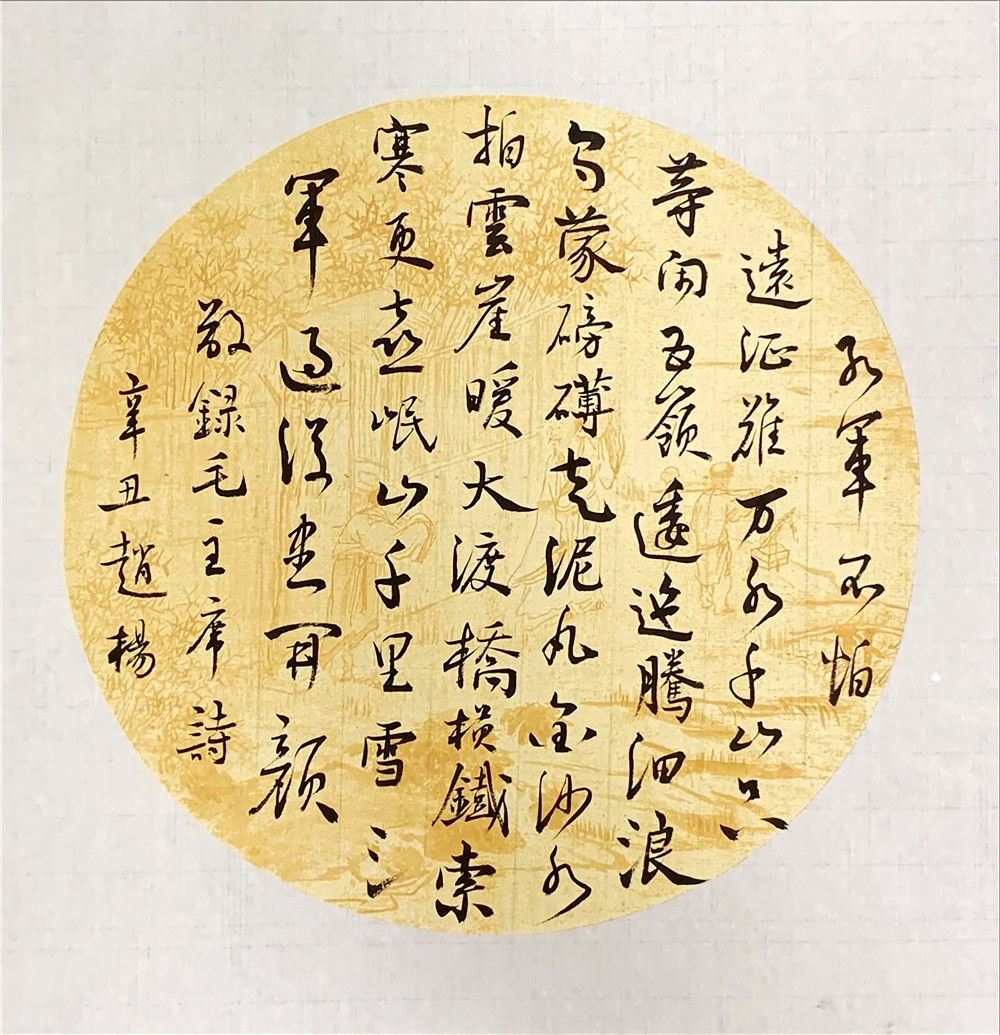 红軍不怕
遠征難万水千山只
等闲五嶺逶迤騰细浪
乌蒙磅礴走泥丸金沙水
拍雲崖暖大渡橋横鐵索
寒更喜岷山千里雪三
軍过後盡開顔
敬録毛主席詩
辛丑趙楊